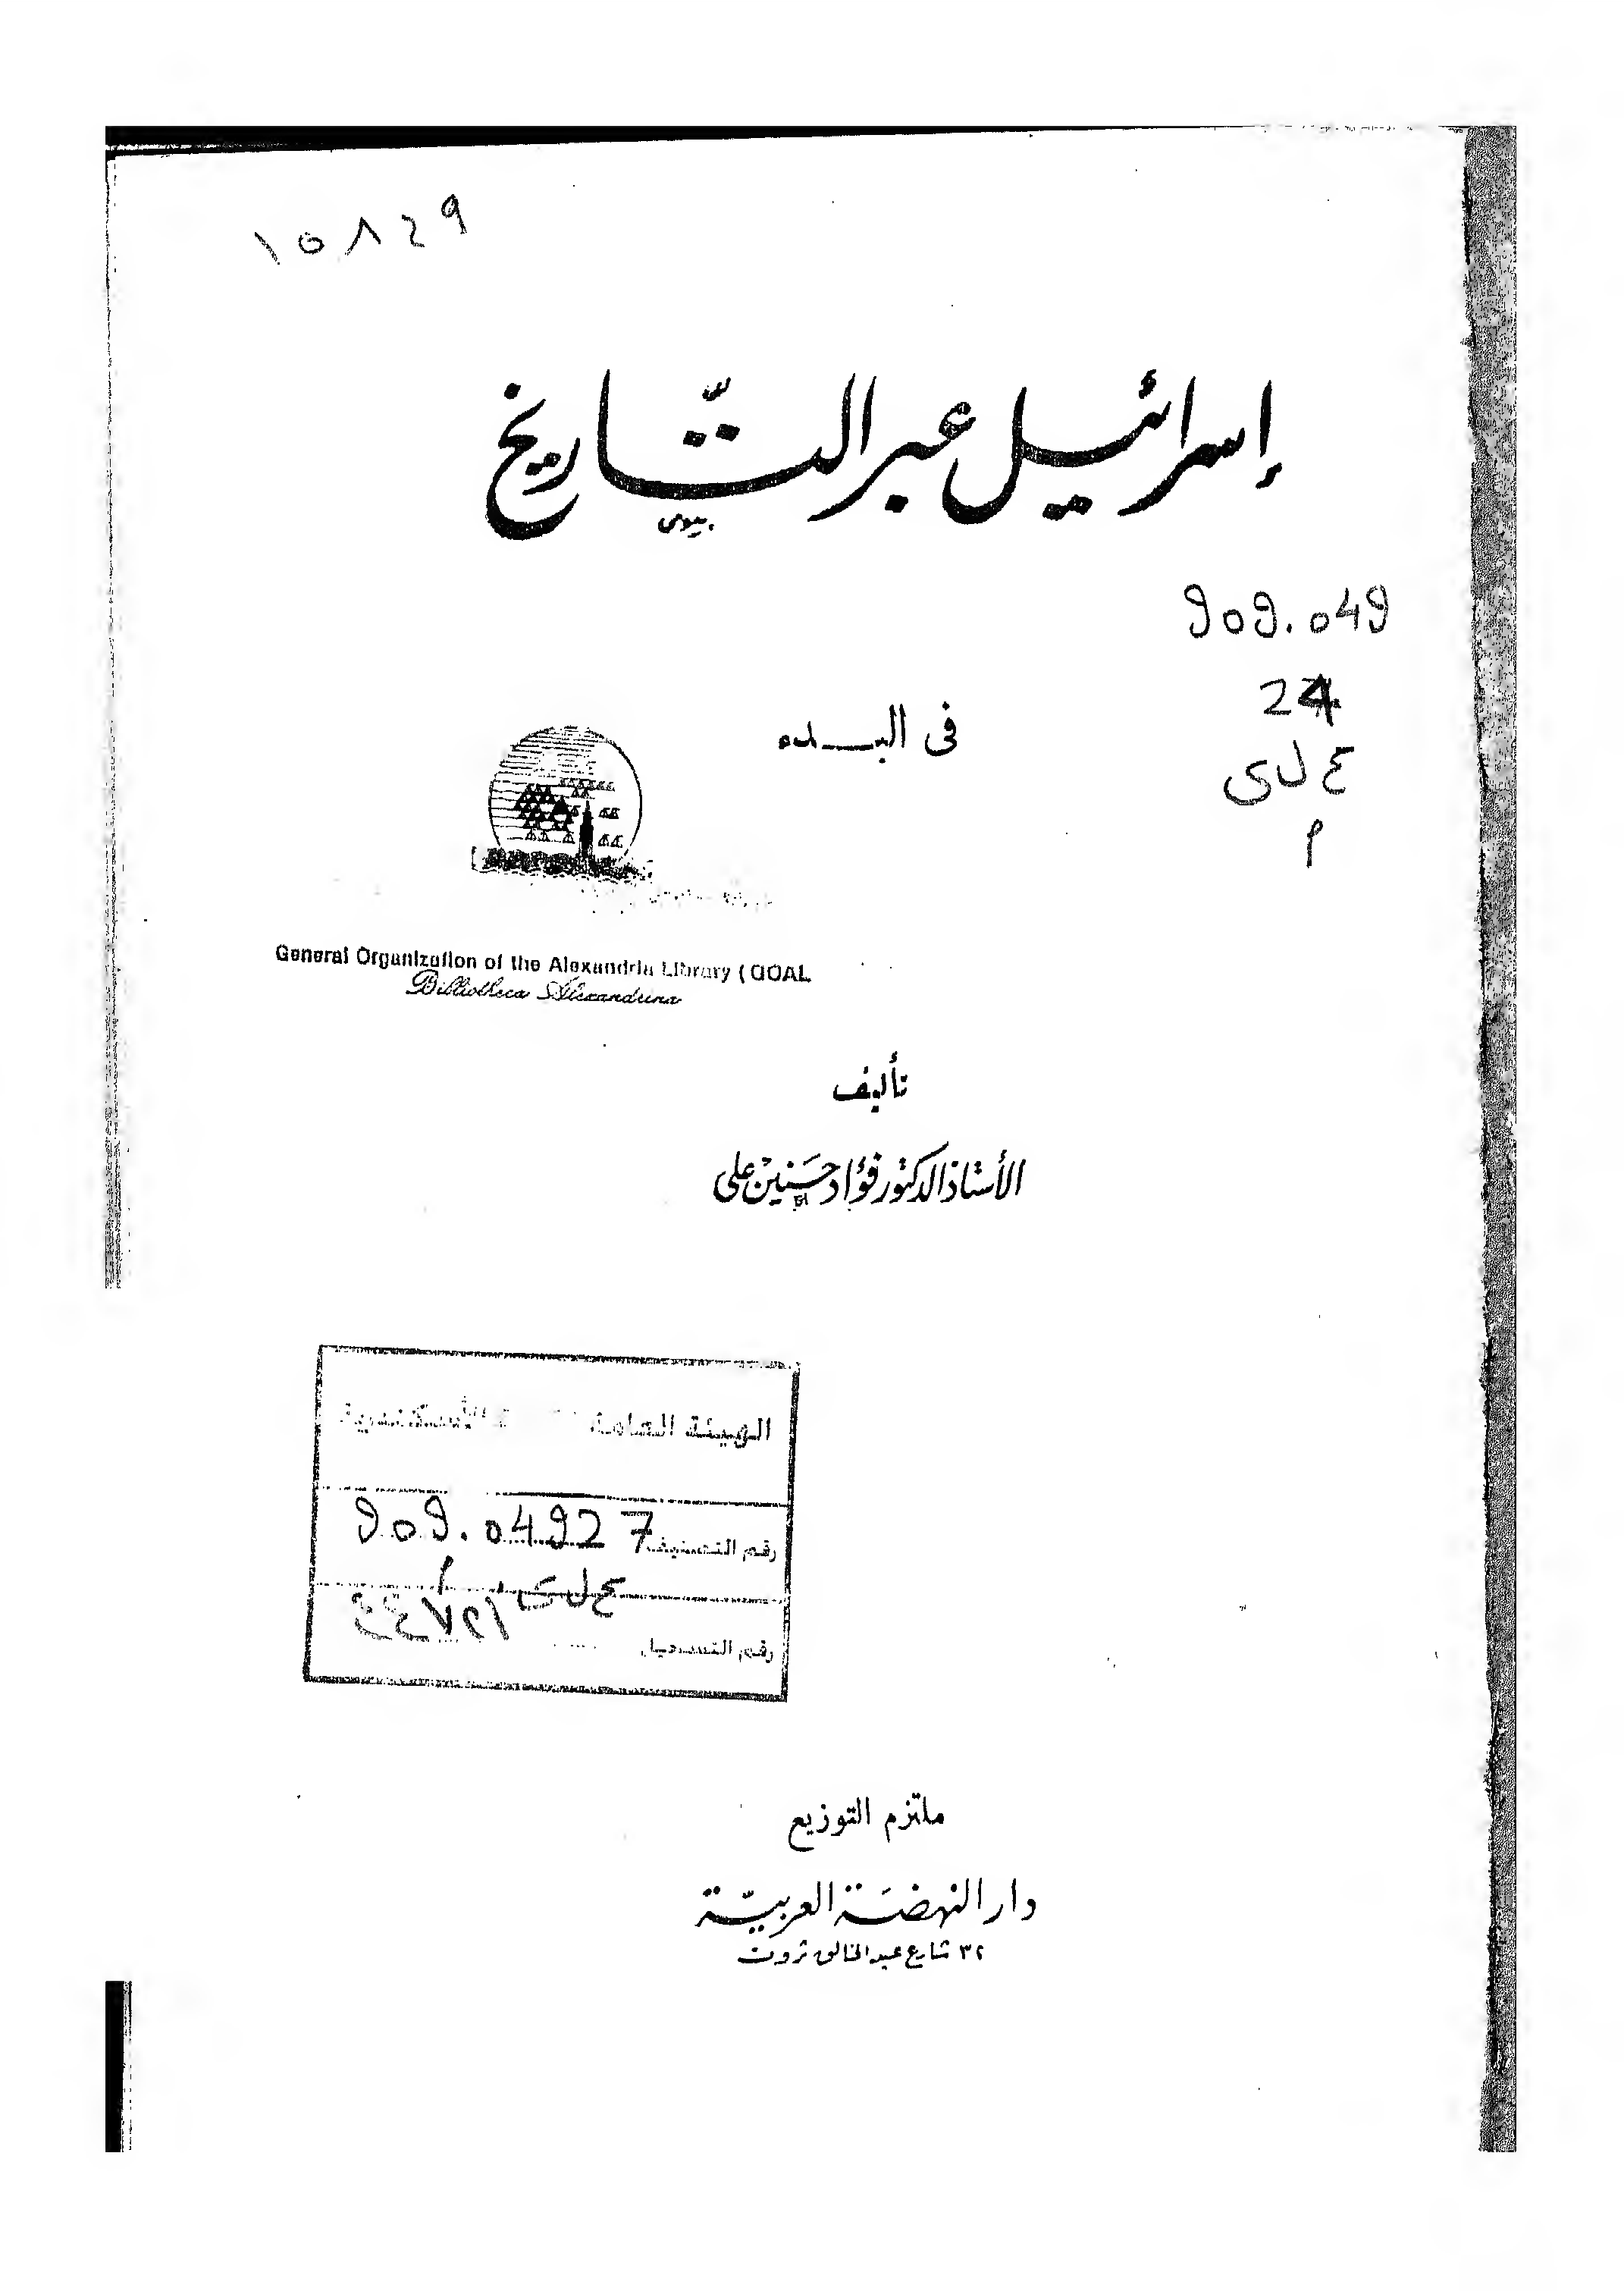 ١٥٨٤٩
إسرائيل عبر التاريخ
بيومى
909.049
24
ع ل ى
م
فى البـــدء
General Organization of the Alexandria Library (GOAL
Bibliotheca Alexandrina
تأليف
الأستاذ الدكتور فؤاد حسنين على
الهيئة العامة الأسكندرية
رقم التصنيف 909.04927
ع ل ى
رقم التسجيل
ملتزم التوزيع
دار النهضة العربية
٣٢ شارع عبد الخالق ثروت